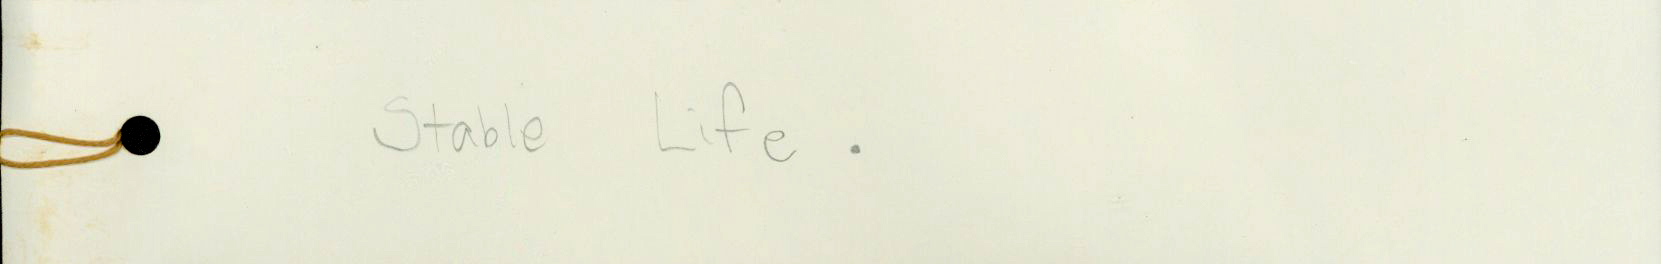 Stable Life.